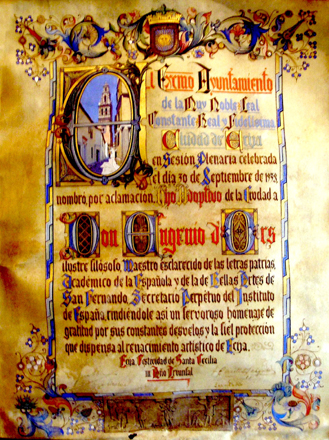 El Excmo Ayuntamiento
de la Muy Noble, Leal
Constante, Real y Fidelísima
Ciudad de Ecija
en Sesión Plenaria celebrada
el día 30 de Septiembre de 1938,
nombró, por aclamación, Hijo Adoptivo de la Ciudad a
Don Eugenio d'Ors
ilustre filósofo, Maestro esclarecido de las letras patrias,
Académico de la Española y de la de Bellas Artes de
San Fernando, Secretario Perpétuo del Instituto
de España, rindiéndole así un fervoroso homenaje de
gratitud por sus constantes desvelos y la fiel protección
que dispensa al renacimiento artístico de Ecija.
Ecija Festividad de Santa Cecilia
III Año Triunfal